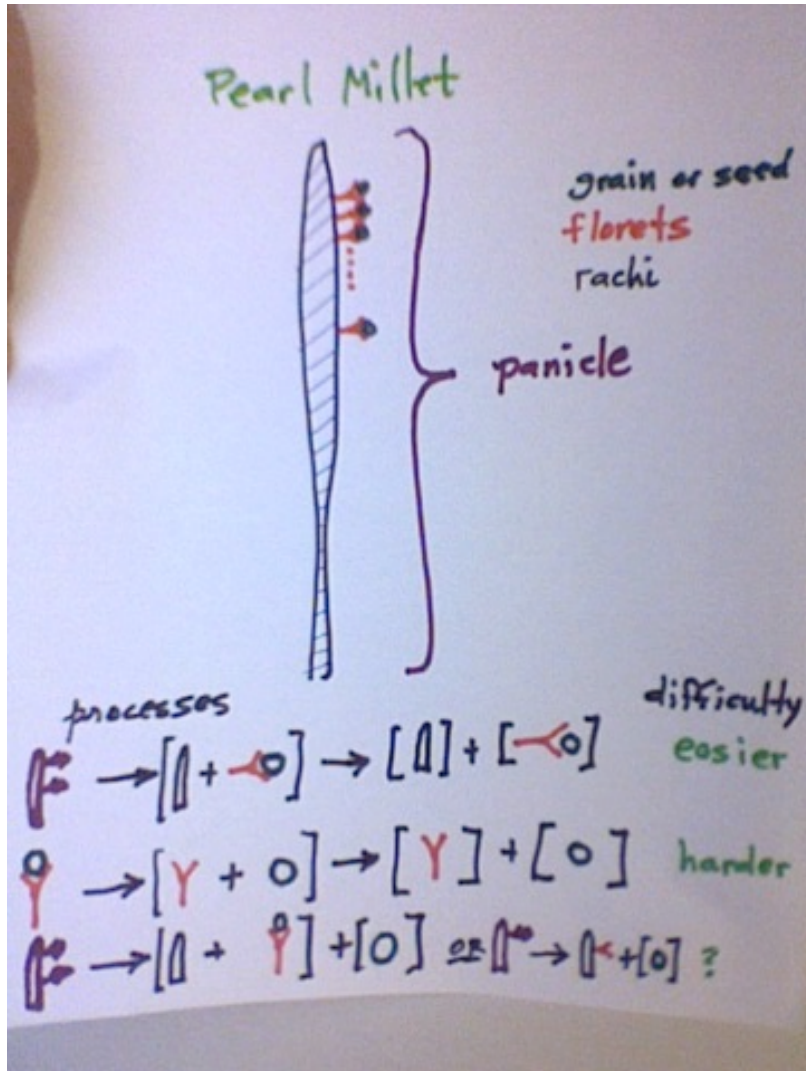 Pearl Millet
grain or seed
florets
rachi
panicle
processes
difficulty
→ [ + ] → [ ] + [ ] easier
→ [ Y + O ] → [ Y ] + [ O ] harder
→ [ + ] + [ O ] OR → + [ O ] ?